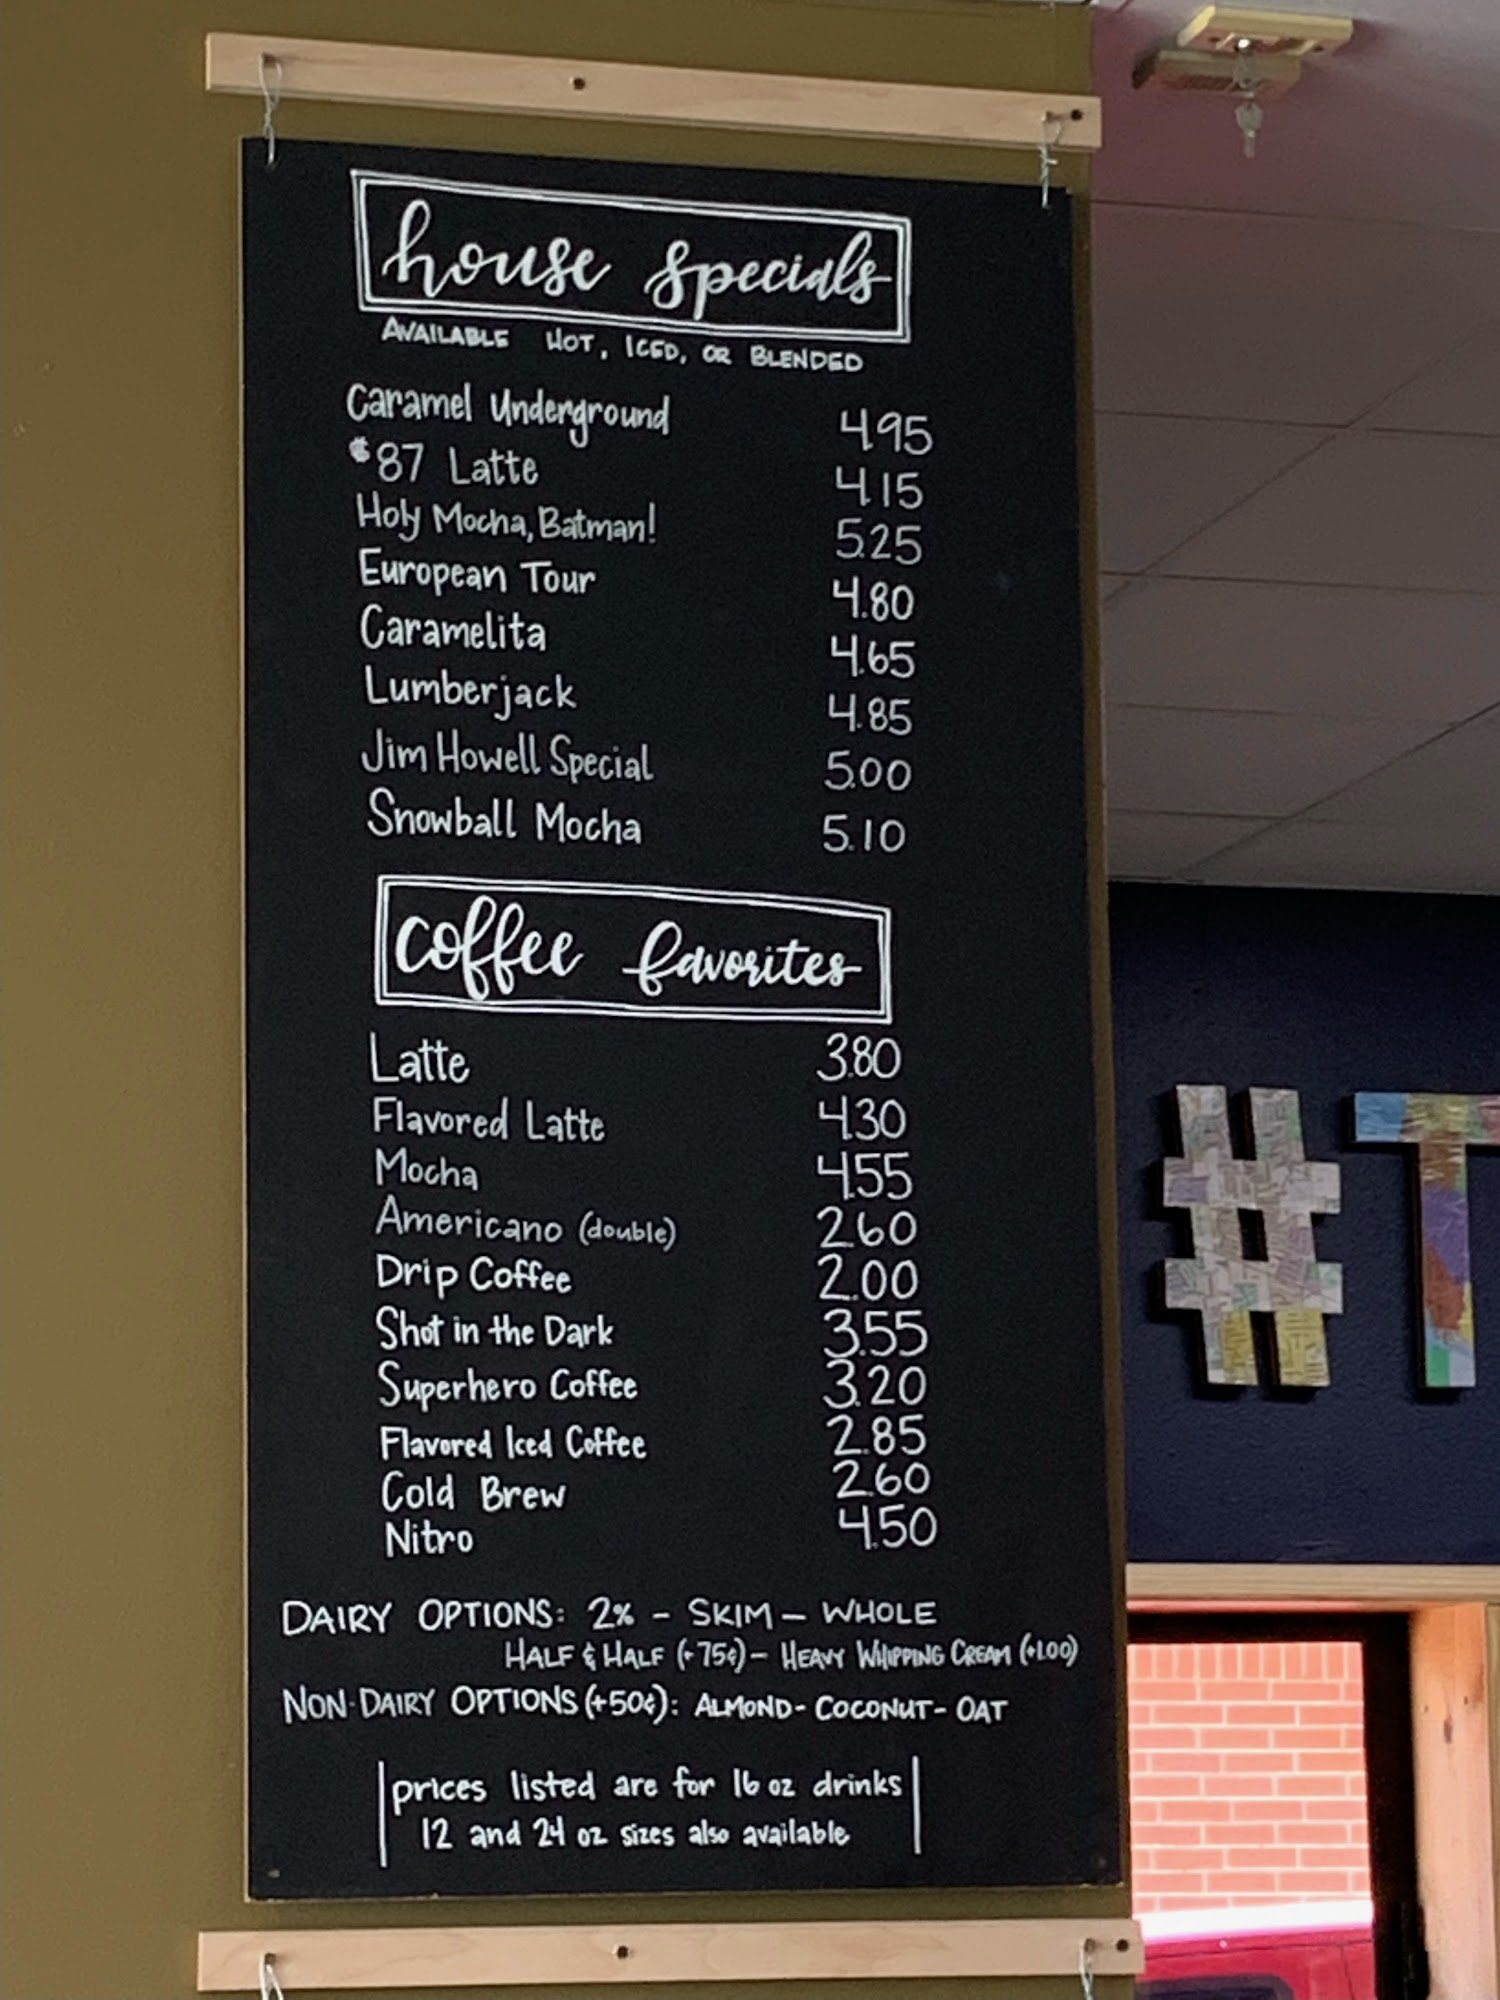 house specials
AVAILABLE HOT, ICED, OR BLENDED
Caramel Underground 4.95
$87 Latte 4.15
Holy Mocha, Batman! 5.25
European Tour 4.80
Caramelita 4.65
Lumberjack 4.85
Jim Howell Special 5.00
Snowball Mocha 5.10
coffee favorites
Latte 3.80
Flavored Latte 4.30
Mocha 4.55
Americano (double) 2.60
Drip Coffee 2.00
Shot in the Dark 3.55
Superhero Coffee 3.20
Flavored Iced Coffee 2.85
Cold Brew 2.60
Nitro 4.50
DAIRY OPTIONS: 2% - SKIM - WHOLE
HALF & HALF (+75¢) - HEAVY WHIPPING CREAM (+1.00)
NON-DAIRY OPTIONS (+50¢): ALMOND - COCONUT - OAT
prices listed are for 16 oz drinks
12 and 24 oz sizes also available
#T